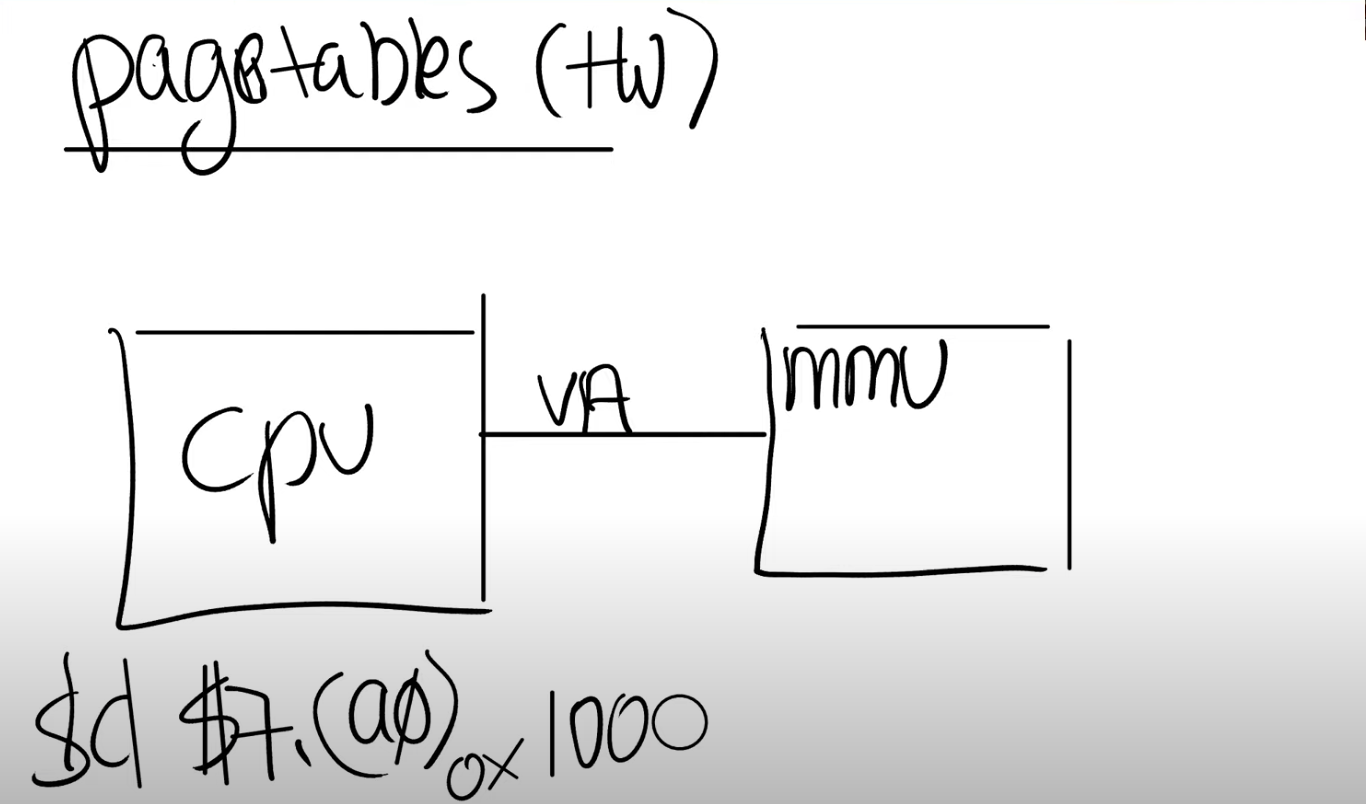 pagetables (HW)
CPU VA MMU
sd $7, (a0) 0x1000